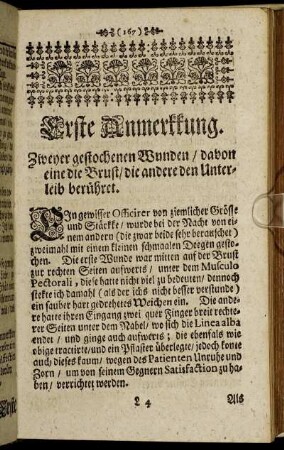 ( 167 )
Erste Anmerkkung.
Zweyer gestochenen Wunden / davon
eine die Brust / die andere den Unter-
leib berühret.
EIn gewisser Officirer von ziemlicher Grösse
und Stärkke / wurde bei der Nacht von ei-
nem andern (die zwar beide sehr berauschet)
zweimahl mit einem kleinen schmaalen Deegen gesto-
chen. Die erste Wunde war mitten auf der Brust
zur rechten Seiten aufwerts / unter dem Musculo
Pectorali, diese hatte nicht viel zu bedeuten / dennoch
stekte ich damahl (als der ichs nicht besser verstunde)
ein sauber hart gedrehetes Weichen ein. Die ande-
re hatte ihren Eingang zwei quer Finger breit rechte-
rer Seiten unter dem Nabel / wo sich die Linea alba
endet / und ginge auch aufwerts; die ebenfals wie
obige tractirte / und ein Pflaster überlegte / jedoch konte
auch dieses kaum / wegen des Patienten Unruhe und
Zorn / um von seinem Gegnern Satisfaction zu ha-
ben / verrichtet werden.
L 4 Als